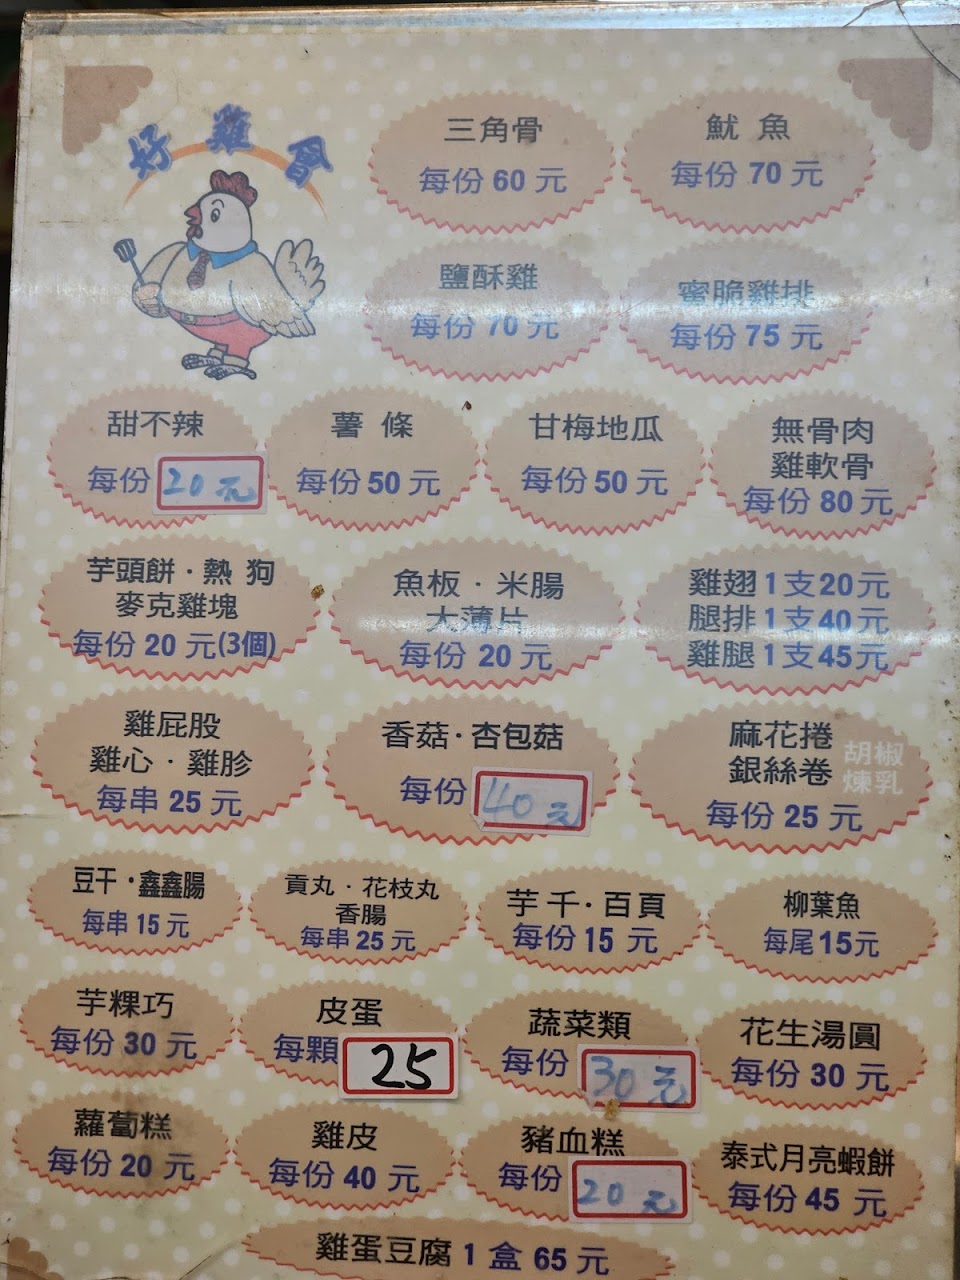 好雞會
三角骨
每份 60 元
魷魚
每份 70 元
鹽酥雞
每份 70 元
蜜脆雞排
每份 75 元
甜不辣
每份 20元
薯條
每份 50 元
甘梅地瓜
每份 50 元
無骨肉
雞軟骨
每份 80 元
芋頭餅·熱狗
麥克雞塊
每份 20 元(3個)
魚板·米腸
大薄片
每份 20 元
雞翅 1 支 20 元
腿排 1 支 40 元
雞腿 1 支 45 元
雞屁股
雞心·雞胗
每串 25 元
香菇·杏包菇
每份 40元
麻花捲
銀絲卷
胡椒
煉乳
每份 25 元
豆干·鑫鑫腸
每串 15 元
貢丸·花枝丸
香腸
每串 25 元
芋千·百頁
每份 15 元
柳葉魚
每尾 15 元
芋粿巧
每份 30 元
皮蛋
每顆 25
蔬菜類
每份 30元
花生湯圓
每份 30 元
蘿蔔糕
每份 20 元
雞皮
每份 40 元
豬血糕
每份 20元
泰式月亮蝦餅
每份 45 元
雞蛋豆腐 1 盒 65 元